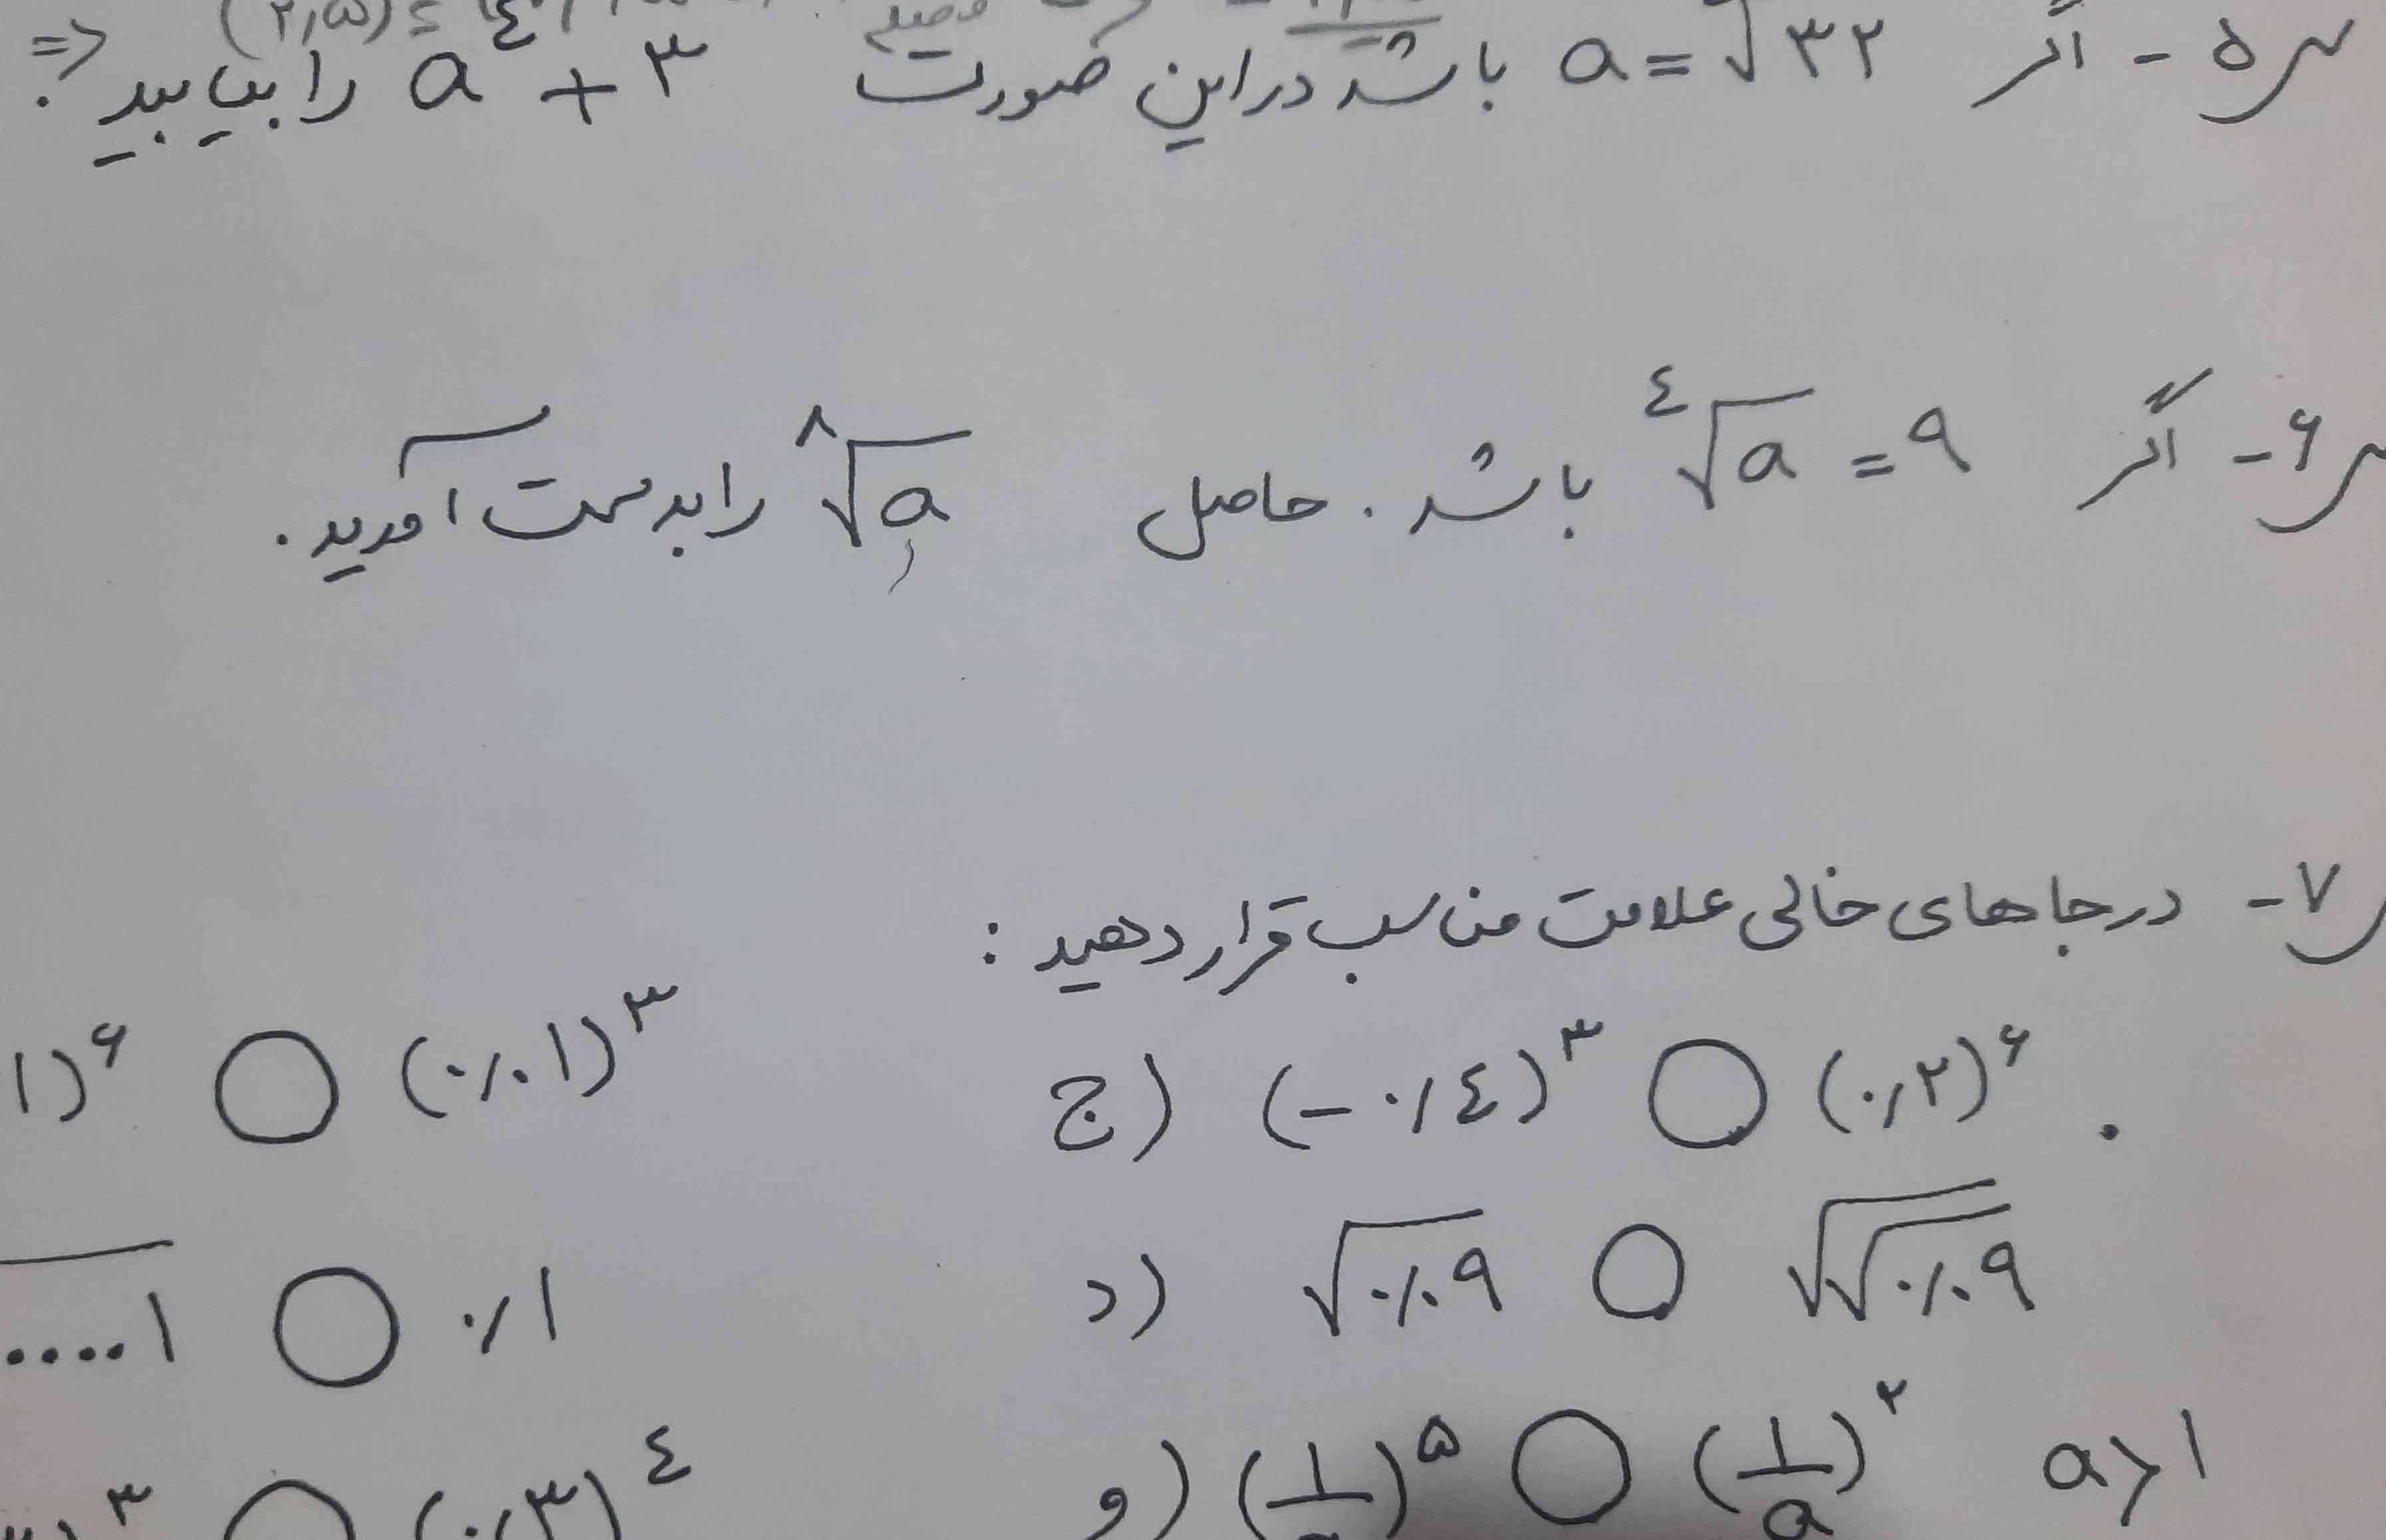 س۵ - اگر a = √۳۲ باشد در این صورت a^٤ + ۳ را بیابید. <=
س۶ - اگر ٤√a = ۹ باشد. حاصل ۸√a را بدست آورید.
س۷ - در جاهای خالی علامت مناسب قرار دهید :
ج) (-۰/٤)^۳ ○ (۰/۲)^۶ .
۱)^۶ ○ (۰/۰۱)^۳
د) √۰/۰۹ ○ √√۰/۰۹
۰۰۰۰۱ ○ ۰/۱
و) (۱/a)^۵ ○ (۱/a)^۲ a>۱
)^۳ ○ (۰/۳)^٤